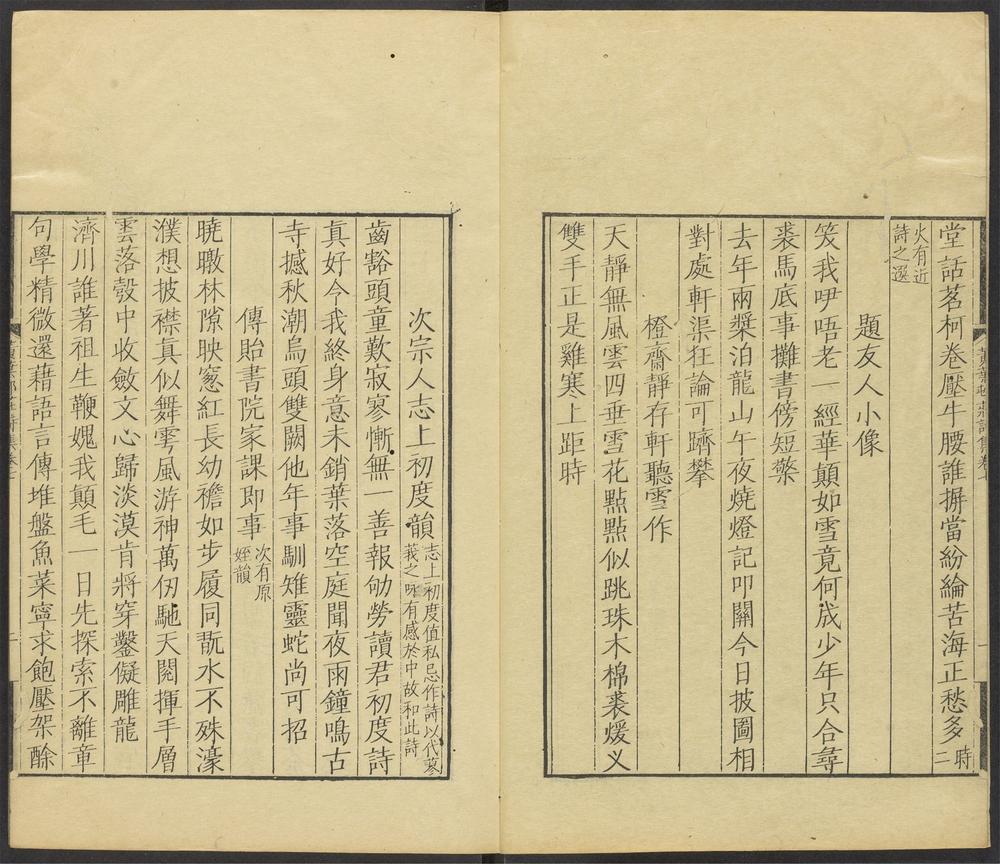 堂話茗柯卷壓牛腰誰摒當紛綸苦海正愁多時二
火有近
詩之選
題友人小像
笑我吚唔老一經華顛如雪竟何成少年只合尋
裘馬底事攤書傍短檠
去年兩槳泊龍山午夜燒燈記叩關今日披圖相
對處軒渠狂論可躋攀
橙齋靜存軒聽雪作
天靜無風雲四垂雪花點點似跳珠木棉裘煖义
雙手正是雞寒上距時
次宗人志上初度韻志上初度值私忌作詩以代蓼
莪之咏有感於中故和此詩
齒豁頭童歎寂寥慚無一善報劬勞讀君初度詩
真好今我終身意未銷葉落空庭聞夜雨鐘鳴古
寺撼秋潮烏頭雙闕他年事馴雉靈蛇尚可招
傳貽書院家課即事次有原
姪韻
曉暾林隙映窻紅長幼襜如步履同翫水不殊濠
濮想披襟真似舞雩風游神萬仞馳天閱揮手層
雲落彀中收斂文心歸淡漠肯將穿鑿儗雕龍
濟川誰著祖生鞭媿我顛毛一日先探索不離章
句學精微還藉語言傳堆盤魚菜寧求飽壓架酴